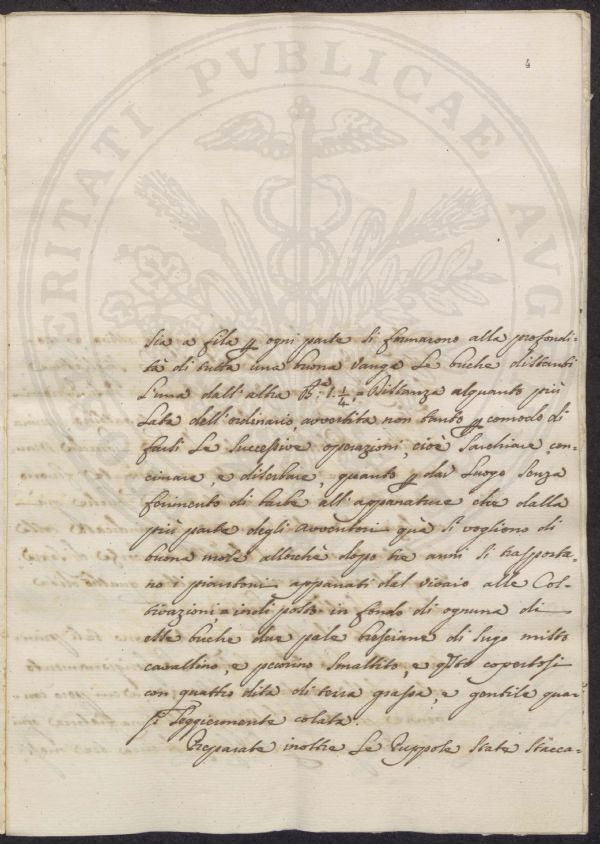 VERITATI PVBLICAE AVG
4
sia a fila ꝑ ogni parte si formarono alla profondi-
tà di tutta una buona vanga le buche distanti
l'una dall'altra B.ª 1. 1/4, = distanza alquanto più
lata dell'ordinario, avvertita non tanto ꝑ comodo di
farsi le successive operazioni, cioè sarchiare, con-
cimare, e diserbare, quanto ꝑ dar luogo senza
ferimento di barbe all'apparature che dalla
più parte degli avventori quà si vogliono di
buona mole allorchè dopo tre anni si trasporta-
no i piantoni apparati dal vivaio alle Col-
tivazioni; = indi posto in fondo di ognuna di
esse buche due pale bresciane di sugo misto
cavallino, e pecorino smaltito, e qsto copertosi
con quattro dita di terra grassa, e gentile quasi
leggiermente colata.
Preparate inoltre le Puppole state stacca-